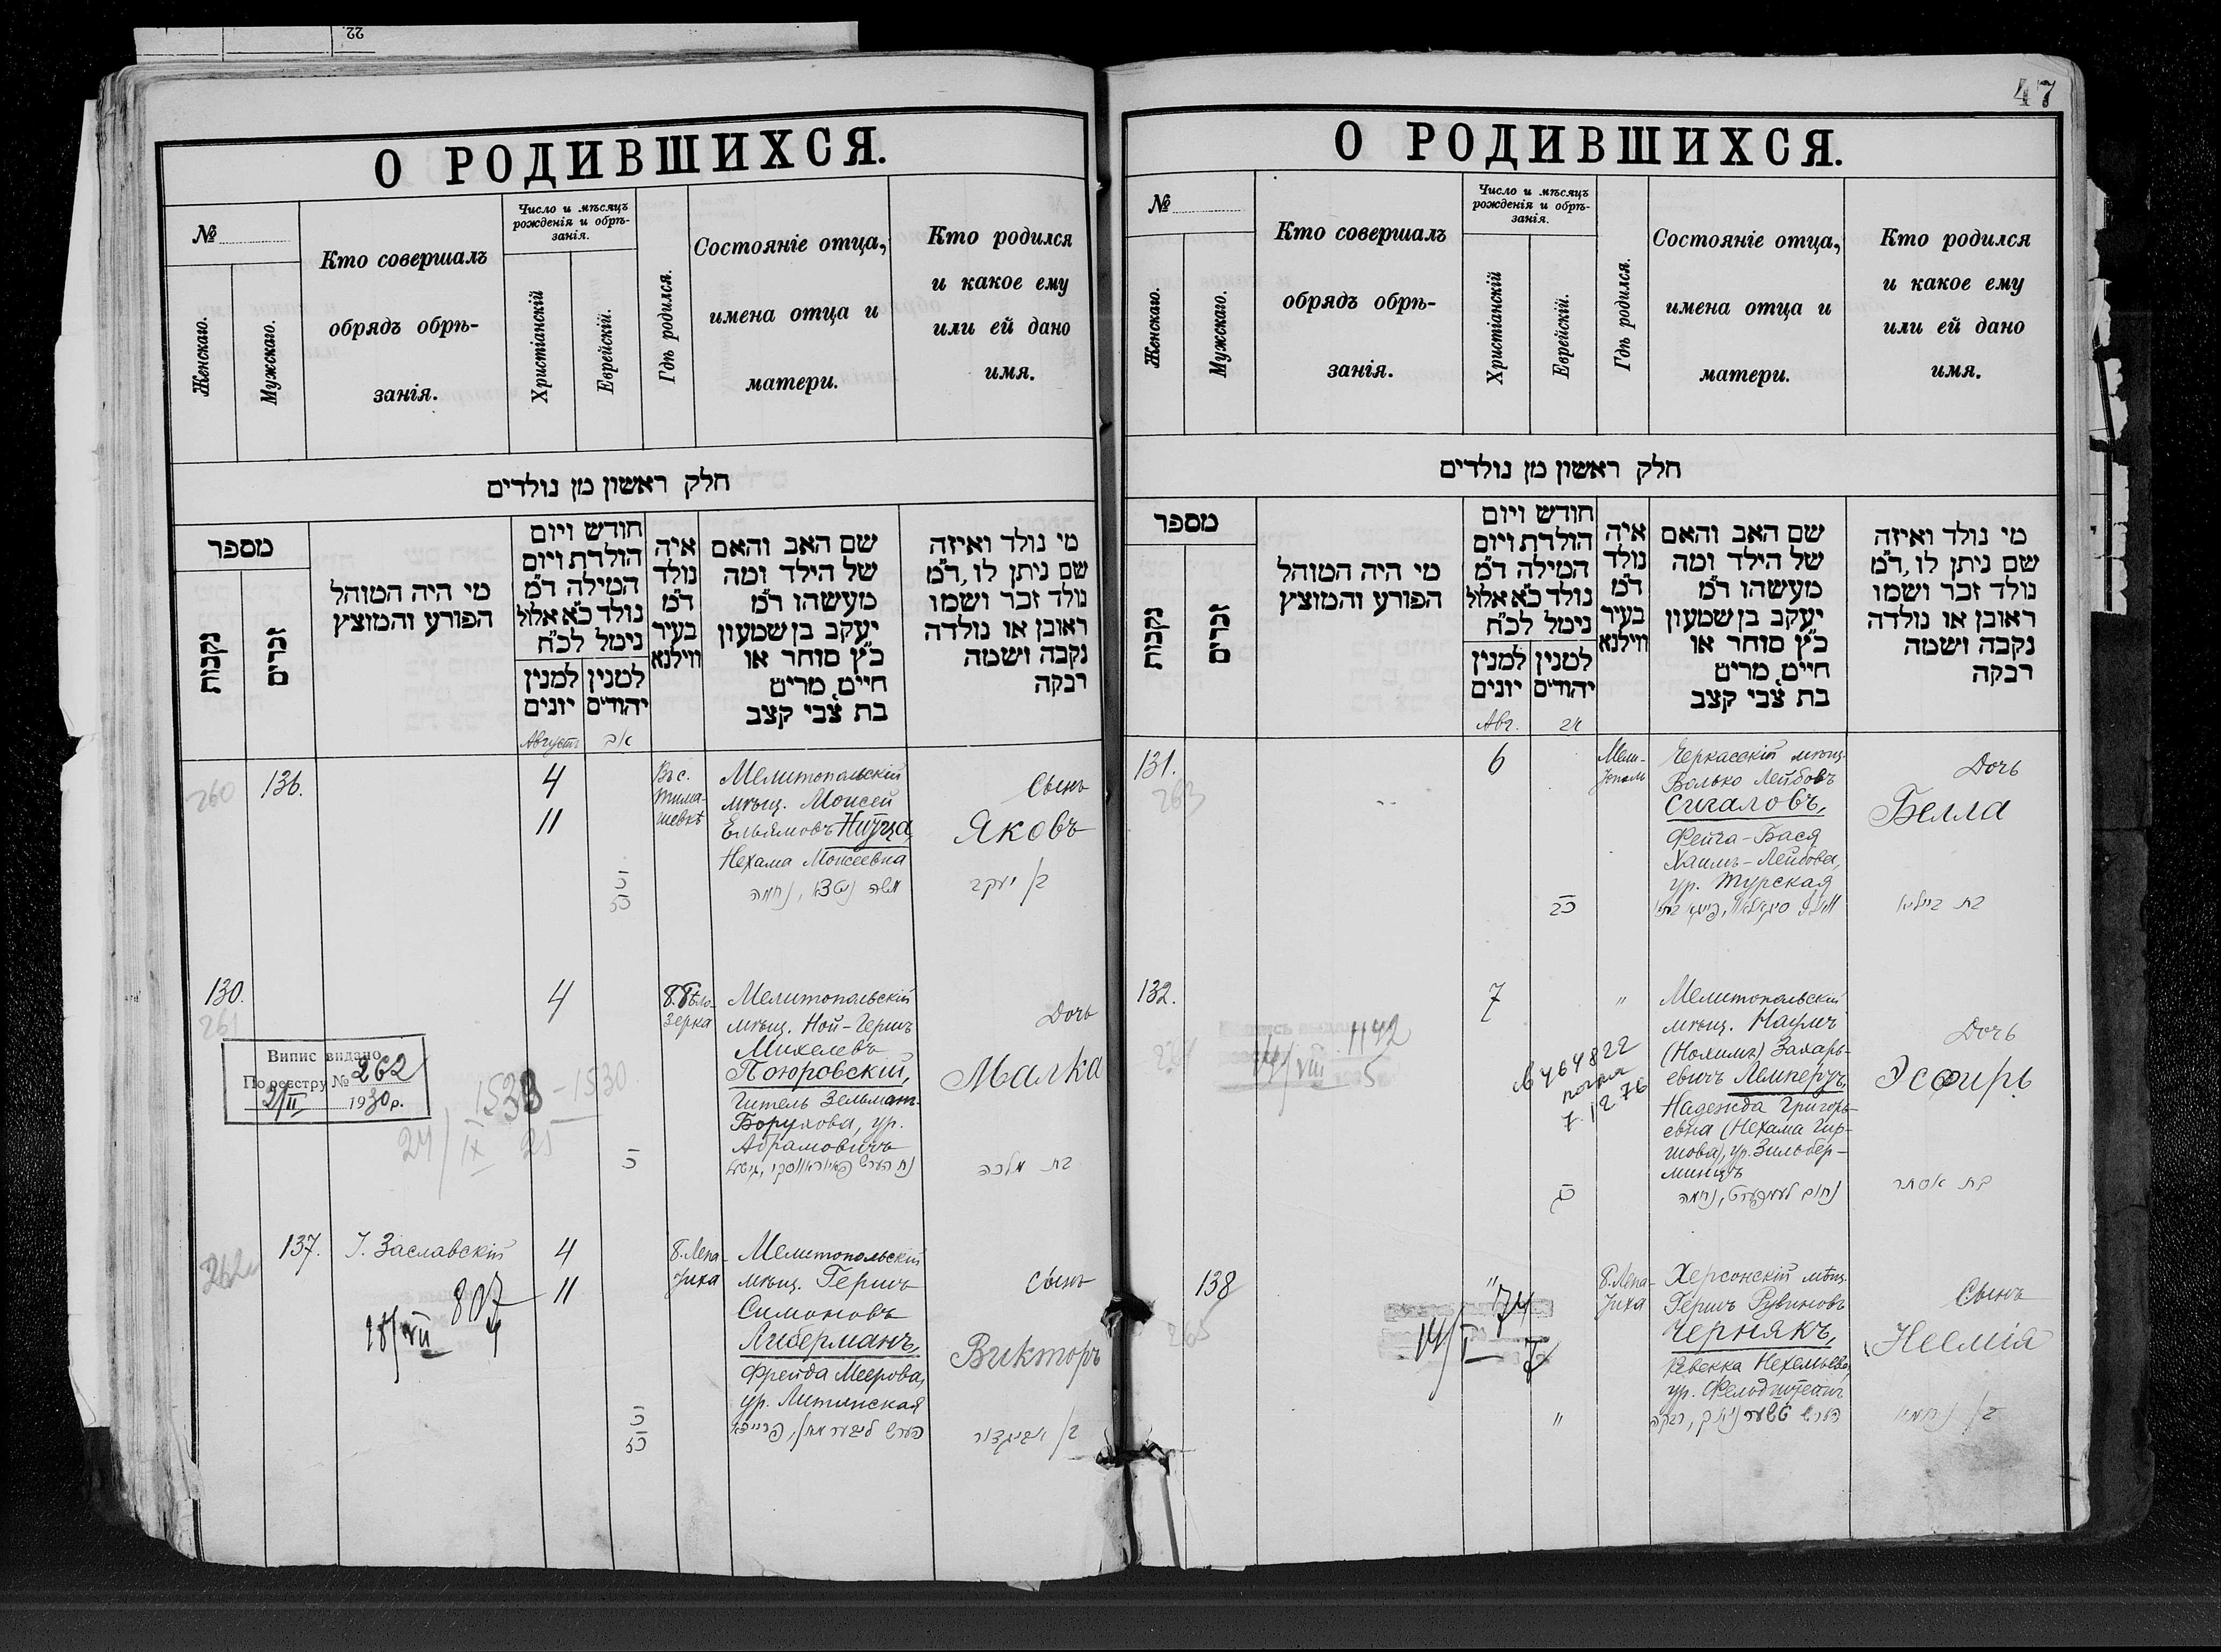 22.
О РОДИВШИХСЯ.
№
Женскаго.
Мужскаго.
Кто совершалъ
обрядъ обрѣ-
занія.
Число и мѣсяцъ
рожденія и обрѣ-
занія.
Христіанскій
Еврейскій.
Гдѣ родился.
Состояніе отца,
имена отца и
матери.
Кто родился
и какое ему
или ей дано
имя.
חלק ראשון מן נולדים
מספר
נקבות
זכרים
מי היה המוהל
הפורע והמוצץ
חודש ויום
הולדת ויום
המילה ד״מ
נולד כ״א אלול
נימל לכ״ח
למנין
יונים
למנין
יהודים
איה
נולד
ד״מ
בעיר
ווילנא
שם האב והאם
של הילד ומה
מעשהו ד״מ
יעקב בן שמעון
כ״ץ סוחר או
חיים, מרים
בת צבי קצב
מי נולד ואיזה
שם ניתן לו, ד״מ
נולד זכר ושמו
ראובן או נולדה
נקבה ושמה
רבקה
Августъ
אב
260
136.
4
11
Въ с.
Тима-
шевкѣ
Мелитопольскій
мѣщ. Моисей
Нехама Моисеевна
Сынъ
Яковъ
יעקב
130.
261
4
Б. Бѣло-
зерка
Мелитопольскій
мѣщ. Ной-Гершъ
Михелевъ
Гитель Зельман-
Борухова, ур.
Абрамовичъ
Дочь
Малка
בת מלכה
Випис видано
По реєстру № 262
21/II 1930 р.
1530
24/IX 25
262
137.
І. Заславскій
4
11
Б. Лепа-
тиха
Мелитопольскій
мѣщ. Гершъ
Симоновъ
Либерманъ,
Фрейда Меерова,
ур. Литинская
Сынъ
Викторъ
807
18/VII 4
47
О РОДИВШИХСЯ.
№
Женскаго.
Мужскаго.
Кто совершалъ
обрядъ обрѣ-
занія.
Число и мѣсяцъ
рожденія и обрѣ-
занія.
Христіанскій
Еврейскій.
Гдѣ родился.
Состояніе отца,
имена отца и
матери.
Кто родился
и какое ему
или ей дано
имя.
חלק ראשון מן נולדים
מספר
נקבות
זכרים
מי היה המוהל
הפורע והמוצץ
חודש ויום
הולדת ויום
המילה ד״מ
נולד כ״א אלול
נימל לכ״ח
למנין
יונים
למנין
יהודים
איה
נולד
ד״מ
בעיר
ווילנא
שם האב והאם
של הילד ומה
מעשהו ד״מ
יעקב בן שמעון
כ״ץ סוחר או
חיים, מרים
בת צבי קצב
מי נולד ואיזה
שם ניתן לו, ד״מ
נולד זכר ושמו
ראובן או נולדה
נקבה ושמה
רבקה
Авг.
131.
263
6
Мели-
тополь
Черкасскій мѣщ.
Волько Лейбовъ
Сигаловъ,
Фейга-Бася
Хаимъ-Лейбова,
ур. Турская
Дочь
Белла
בת ביילא
132.
7
"
Мелитопольскій
мѣщ. Наумъ
(Нохимъ) Захарь-
евичъ Лемпертъ,
Надежда Григорь-
евна (Нехама Гир-
шова), ур. Зильбер-
минцъ
Дочь
Эсѳирь
בת אסתר
1142
14/VIII 5
464822
7.12 76
138
265
"
Б. Лепа-
тиха
Херсонскій мѣщ.
Гершъ Рувиновъ
Чернякъ,
Сынъ
Неемія
74
14/I 7
"